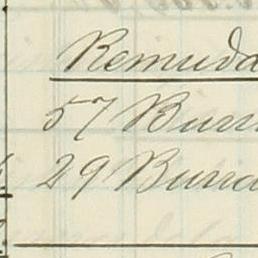 Remuda
57 Burr
29 Burra